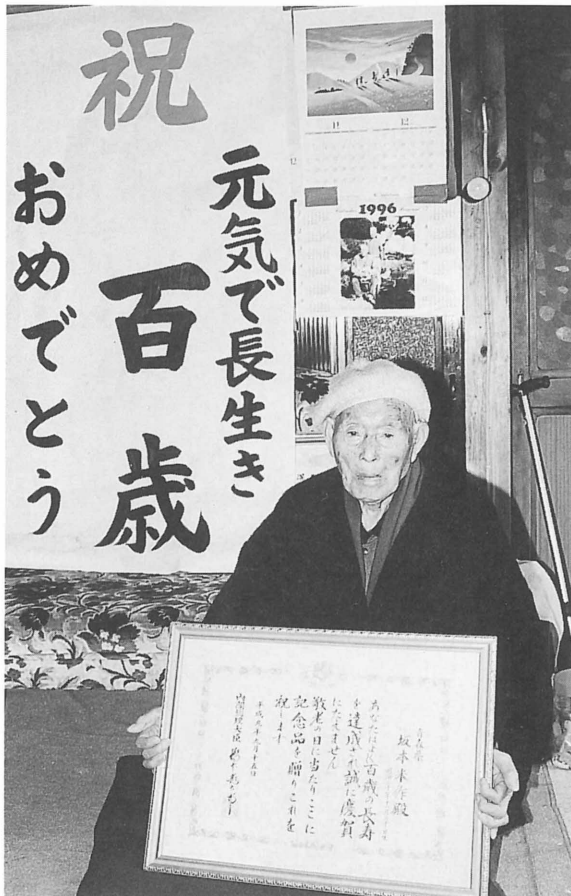 祝
元気で長生き
百歳
おめでとう
11 12
12
1996
坂本末作殿
あなたはよく百歳の長寿
を達成され誠に慶賀
にたえません
敬老の日に当たりここに
記念品を贈りこれを
祝します
平成九年九月十五日
内閣総理大臣